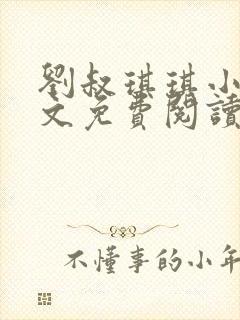 劉叔琪琪小
文免費閱讀
不懂事的小年